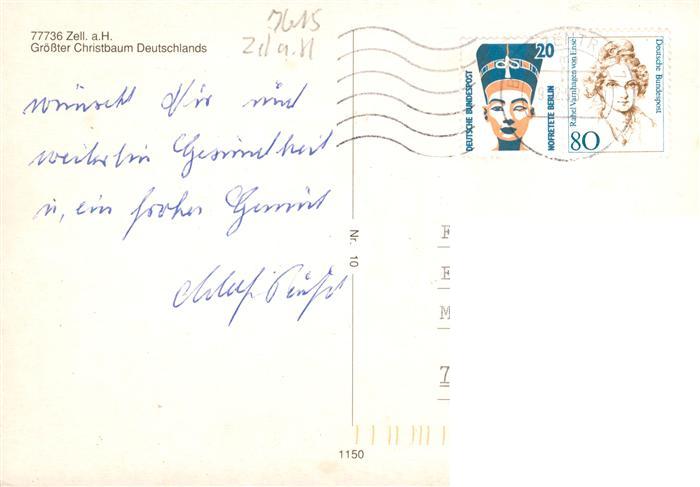 77736 Zell. a.H.
Größter Christbaum Deutschlands
7615
Zell a. H
wünscht Dir und
weiterhin Gesundheit
u, ein frohes Gemüt
Adolf
DEUTSCHE BUNDESPOST
20
NOFRETETE BERLIN
Rahel Varnhagen von Ense
80
Deutsche Bundespost
ZENTR
Nr. 10
F
E
M
7
1150